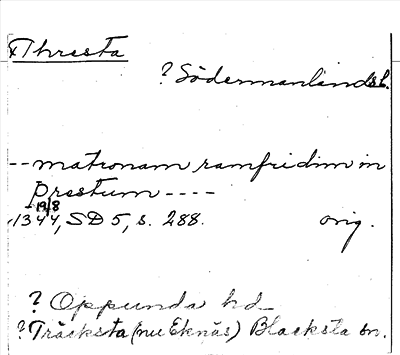 x Thresta
? Södermanlands l.
-- matronam ramfridim in
Drestum ----
19/8
1344, SD 5, s. 288. orig.
? Oppunda hd
? Träcksta (nu Eknäs) Blacksta sn.